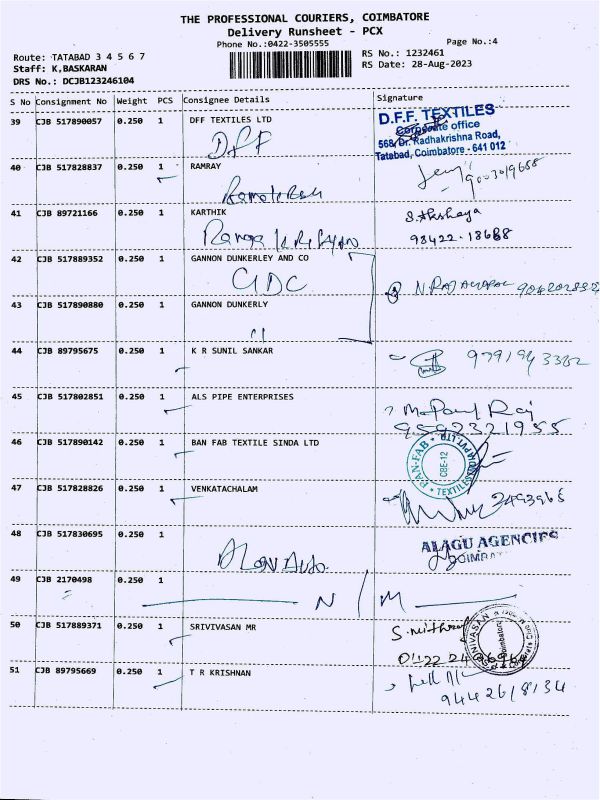 THE PROFESSIONAL COURIERS, COIMBATORE
Delivery Runsheet - PCX
Phone No.:0422-3505555
Page No.:4
Route: TATABAD 3 4 5 6 7
RS No.: 1232461
Staff: K,BASKARAN
RS Date: 28-Aug-2023
DRS No.: DCJB123246104
S No Consignment No Weight PCS Consignee Details Signature
39 CJB 517890057 0.250 1 DFF TEXTILES LTD
DFF
D.F.F. TEXTILES
Corporate office
568, Dr. Radhakrishna Road,
Tatabad, Coimbatore - 641 012
40 CJB 517828837 0.250 1 RAMRAY
9003019688
41 CJB 89721166 0.250 1 KARTHIK
S. Akshaya
98422-18688
42 CJB 517889352 0.250 1 GANNON DUNKERLEY AND CO
GDC
N. RAJAGOPAL
43 CJB 517890880 0.250 1 GANNON DUNKERLY
44 CJB 89795675 0.250 1 K R SUNIL SANKAR
45 CJB 517802851 0.250 1 ALS PIPE ENTERPRISES
M. Paul Raj
46 CJB 517890142 0.250 1 BAN FAB TEXTILE SINDA LTD
CBE-12
47 CJB 517828826 0.250 1 VENKATACHALAM
48 CJB 517830695 0.250 1
ALAGU AGENCIES
49 CJB 2170498 0.250 1
N / M
50 CJB 517889371 0.250 1 SRIVIVASAN MR
51 CJB 89795669 0.250 1 T R KRISHNAN
9442618134